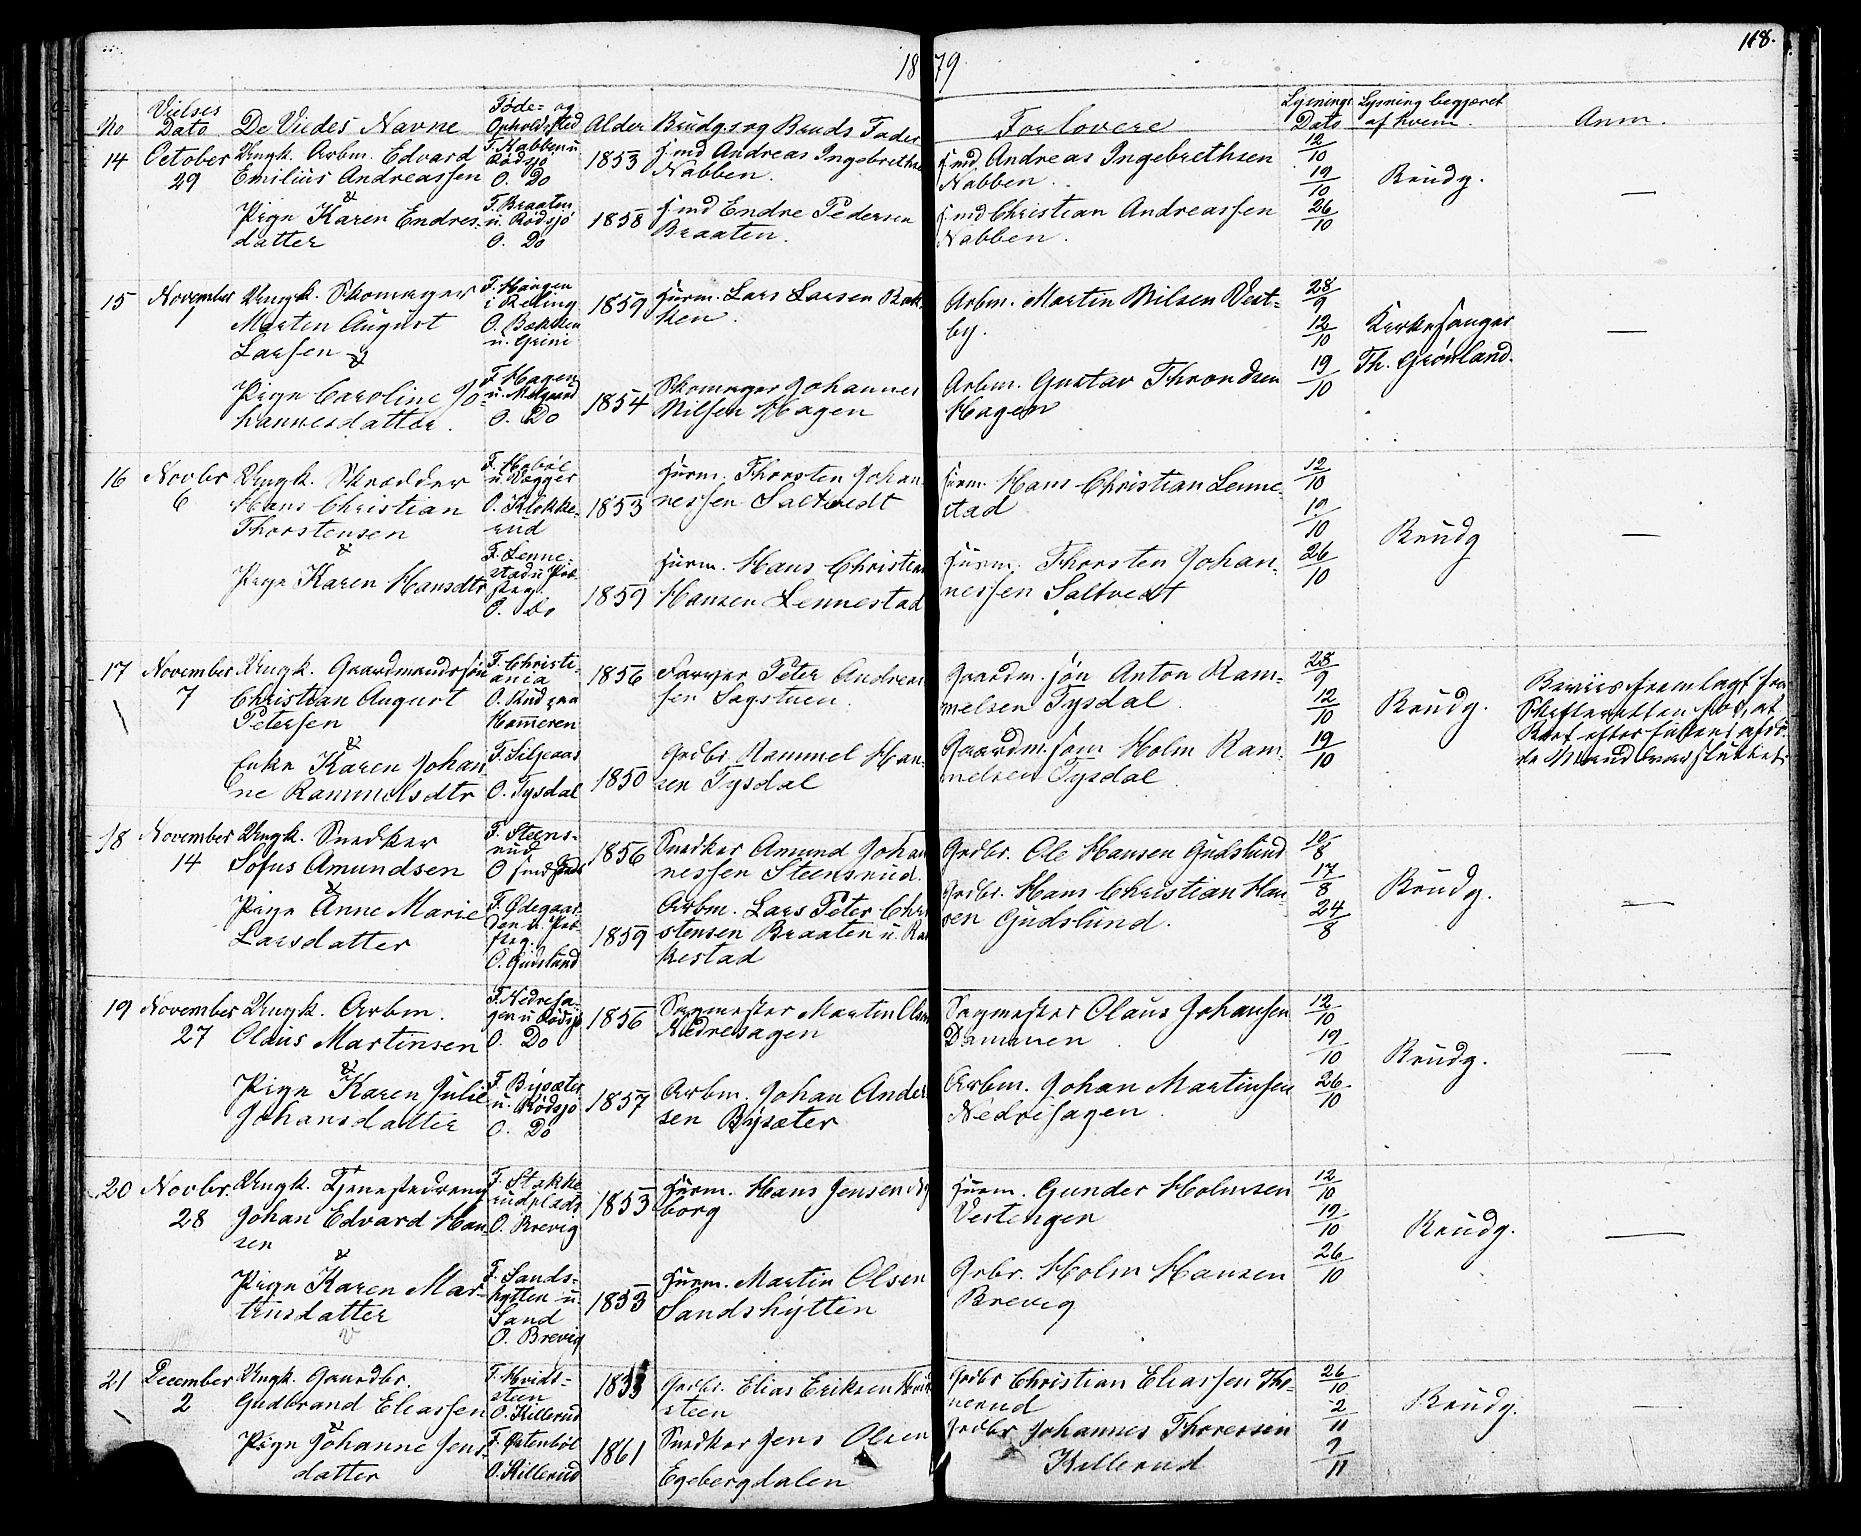 1879
118.
No
Vielses Dato
De Viedes Navne
Føde- og Opholdssted
Alder
Brudg.s og Bruds Fader
Forlovere
Lysnings Dato
Lysning begjæret af hvem.
Anm.
14
October 29
Ungk. Arbm. Edvard
Emilius Andreassen
&
Pige Karen Endres-
datter
F. Nabben u
Rødsjø
O. Do
F. Braaten
u. Rødsjø
O. Do
1853
1858
Hmd Andreas Ingebreths
Nabben.
Hmd Endre Pedersen
Braaten.
Hmd. Andreas Ingebrethsen
Nabben.
Hmd Christian Andreassen
Nabben.
12/10
19/10
26/10
Brudg.
—
15
November 1
Ungk. Skomager
Marten August
Larsen &
Pige Caroline Jo-
hannesdatter.
F. Haugen
i Røling
O. Bakken
u. Grini
F. Hagen
u. Melgaard
O. Do
1859
1854
Husm. Lars Larsen Bak-
ken.
Skomager Johannes
Nilsen Hagen
Arbm. Martin Nilsen Vest-
by.
Arbm. Gustav Throndsen
Hagen
28/9
12/10
19/10
Kirkesanger
Th. Grønland.
—
16
Novbr 6
Ungk. Skrædder
Hans Christian
Thorstensen
&
Pige Karen Hansdtr
F. Habøl
u. Vagger
O. Klokke-
rud
F. Lenne-
stad u Præ-
steg.
O. Do
1853
1859
Husm. Thorsten Johan-
nessen Saltvedt
Husm. Hans Christian
Hansen Lennestad
Husm. Hans Christian Lenne-
stad
Husm. Thorsten Johan-
nessen Saltvedt
12/10
19/10
26/10
Brudg
—
17
November 7
Ungk. Gaardmandssøn
Christian August
Petersen
&
Enke Karen Johan
ne Rammelsdtr
F. Christi-
ania
O. Rud paa
Kammeren
F. Siljeaas
O. Tysdal
1856
1850
Farver Peter Andrea
sen Sagstuen.
Grdbr. Rammel Han-
sen Tysdal
Gaardm. søn Anton Ram-
melsen Tysdal.
Gaardm. søn Holm Ram-
melsen Tysdal
28/9
12/10
19/10
Brudg.
Beviis fremlagt fra
Skifteretten for, at
Boet efter Enkens afdø-
de Mand var sluttet.
18
November 14
Ungk. Snedker
Sofus Amundsen
&
Pige Anne Marie
Larsdatter
F. Steens-
rud
F. Ødegaar-
den u. Præ-
steg.
O. Gudslund
1856
1859
Snedker Amund Johan
nessen Steensrud.
Arbm. Lars Peter Chri
stensen Braaten u. Ra
kestad
Grdbr. Ole Hansen Gudslund
Grdbr. Hans Christian Han
sen Gudslund.
10/8
17/8
24/8
Brudg.
—
19
November 27
Ungk. Arbm.
Olaus Martinsen
&
Pige Karen Julie
Johansdatter
F. Nedresa-
gen u Rødsjø
O. Do
F. Bysæter
u. Rødsjø
O. Do
1856
1857
Sagmester Martin Olsen
Nedresagen
Arbm. Johan Ander
sen Bysæter
Sagmester Olaus Johansen
Dammen
Arbm. Johan Martinsen
Nedresagen.
12/10
19/10
26/10
Brudg.
—
20
Novbr. 28
Ungk. Tjenestedreng
Johan Edvard Han-
sen
&
Pige Karen Mar-
tinsdatter
F. Stokke
rudplads
O. Brevig
F. Sands-
hytten u.
Sand
O. Brevig
1853
1853
Husm. Hans Jensen Ny
borg
Husm. Martin Olsen
Sandshytten
Husm. Gunder Holmsen
Vestengen
Grbr. Holm Hansen
Brevig
12/10
19/10
26/10
Brudg.
—
21
December 2
Ungk. Gaardbr.
Gudbrand Eliassen
&
Pige Johanne Jens-
datter
F. Hvids-
steen
O. Killerud
F. Østenbøl
O. Killerud
1861
Grdbr. Elias Eriksen Hvid
steen
Snedker Jens Olsen
Egebergdalen
Grdbr Christian Eliassen Tho-
nerud
Grdbr Johannes Thoresen
Killerud
26/10
2/11
9/11
Brudg.
—